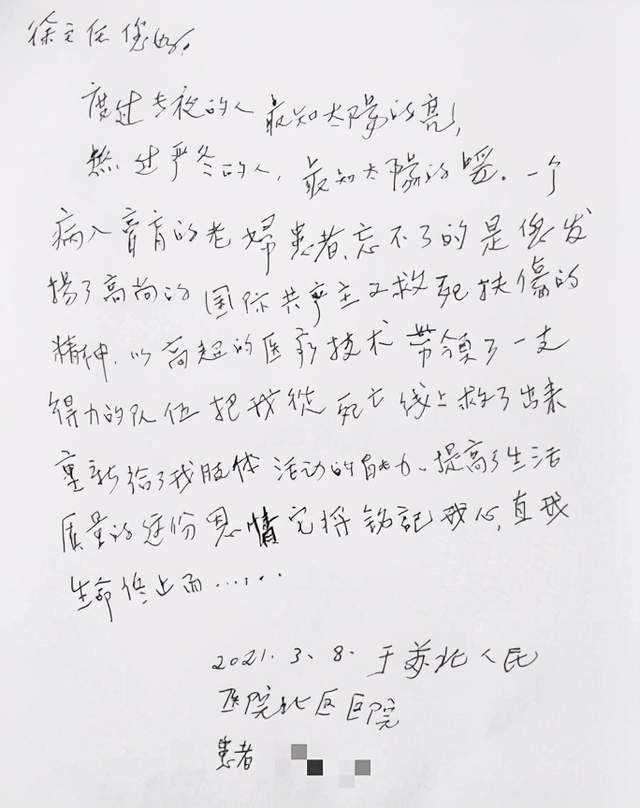 徐主任您好！
度过长夜的人最知太阳的亮，
熬过严冬的人，最知太阳的暖。一个
病入膏肓的老婦患者，忘不了的是您发
揚了高尚的国际共产主义救死扶傷的
精神，以高超的医疗技术带领了一支
得力的队伍把我從死亡线上救了出来
重新给了我肢体活动的能力、提高了生活
质量的这份恩情它将铭記我心，直我
生命停止而……
2021.3.8.于苏北人民
医院北区医院
患者